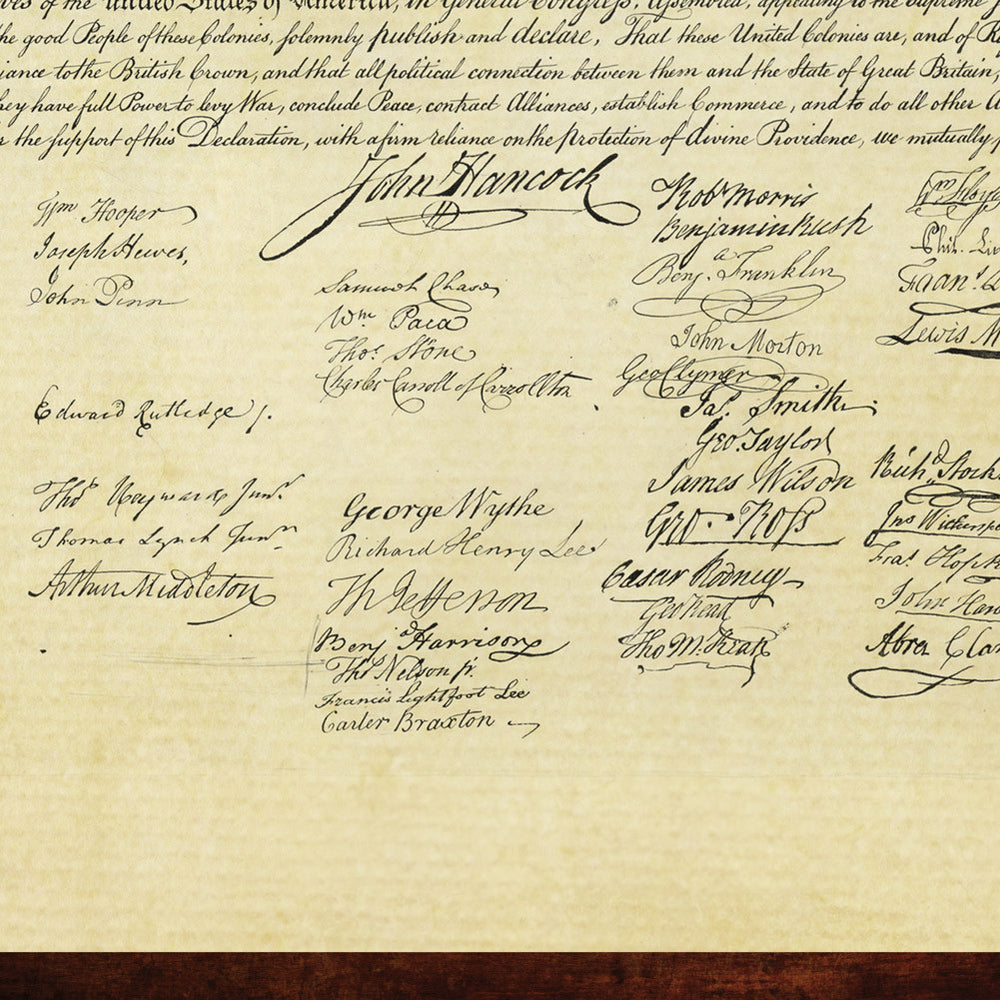 of the United States of America, in General Congress, Assembled, appealing to the Supreme
the good People of these Colonies, solemnly publish and declare, That these United Colonies are, and of
to the British Crown, and that all political connection between them and the State of Great Britain,
they have full Power to levy War, conclude Peace, contract Alliances, establish Commerce, and to do all other
the support of this Declaration, with a firm reliance on the protection of divine Providence, we mutually
John Hancock
Wm Hooper
Joseph Hewes,
John Penn
Edward Rutledge /.
Thos Heyward Junr.
Thomas Lynch Junr
Arthur Middleton
Samuel Chase
Wm Paca
Thos. Stone
Charles Carroll of Carrollton
George Wythe
Richard Henry Lee
Th Jefferson
Benja Harrison
Thos Nelson jr.
Francis Lightfoot Lee
Carter Braxton
Robt Morris
Benjamin Rush
Benja. Franklin
John Morton
Geo Clymer
Jas. Smith
Geo. Taylor
James Wilson
Geo. Ross
Caesar Rodney
Geo Read
Tho M:Kean
Wm Floyd
Phil.
Lewis
Richd
Jno
Fras.
John
Abra